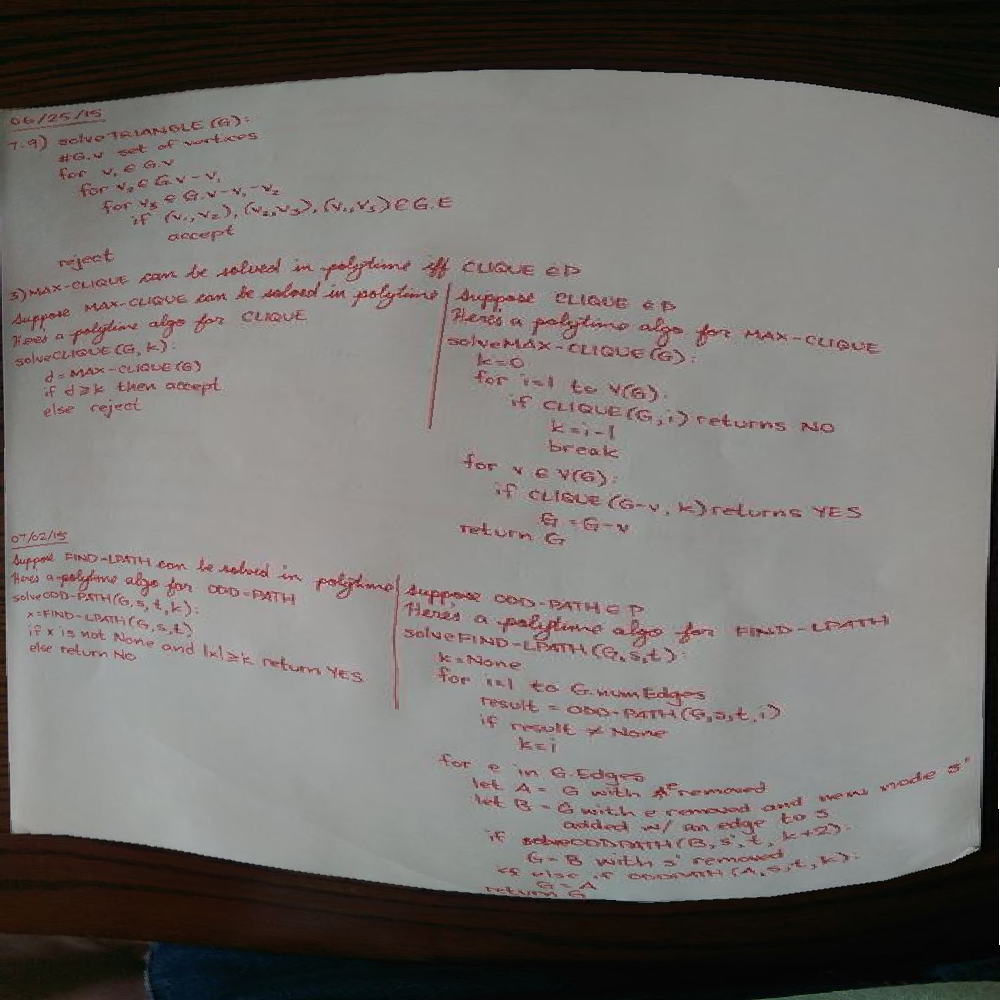 06/25/15
7.9) solveTRIANGLE(G):
#G.V set of vertices
for v₁ ∈ G.V
for v₂ ∈ G.V-v₁
for v₃ ∈ G.V-v₁-v₂
if (v₁,v₂),(v₂,v₃),(v₁,v₃)∈G.E
accept
reject
3)MAX-CLIQUE can be solved in polytime iff CLIQUE ∈P
Suppose MAX-CLIQUE can be solved in polytime
Here's a polytime algo for CLIQUE
solveCLIQUE(G,k):
d=MAX-CLIQUE(G)
if d≥k then accept
else reject
Suppose CLIQUE ∈P
Here's a polytime algo for MAX-CLIQUE
solveMAX-CLIQUE(G):
k=0
for i=1 to V(G):
if CLIQUE(G,i) returns NO
k=i-1
break
for v ∈ V(G):
if CLIQUE(G-v,k) returns YES
G=G-v
return G
07/02/15
Suppose FIND-LPATH can be solved in polytime
Here's a polytime algo for ODD-PATH
solveODD-PATH(G,s,t,k):
x=FIND-LPATH(G,s,t)
if x is not None and |x|≥k return YES
else return No
Suppose ODD-PATH∈P
Here's a polytime algo for FIND-LPATH
solveFIND-LPATH(G,s,t):
k=None
for i=1 to G.numEdges
result = ODD-PATH(G,s,t,i)
if result ≠ None
k=i
for e in G.Edges
let A = G with e removed
let B = G with e removed and new node s'
added w/ an edge to s
if solveODDPATH(B,s',t,k+2):
G=B with s' removed
else if ODDPATH(A,s,t,k):
G=A
return G